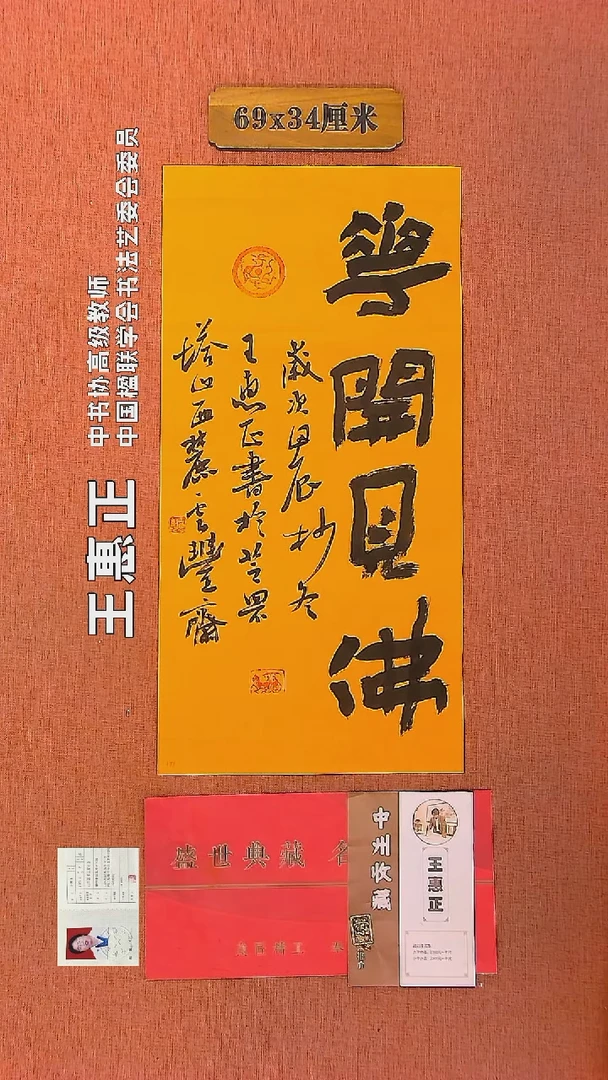 69x34厘米
華開見佛
歲次甲辰抄冬
王惠正書於芝罘
塔山西麓雲豐齋
王惠正
中书协高级教师
中国楹联学会书法艺委会委员
盛世典藏 名
中州收藏
王惠正